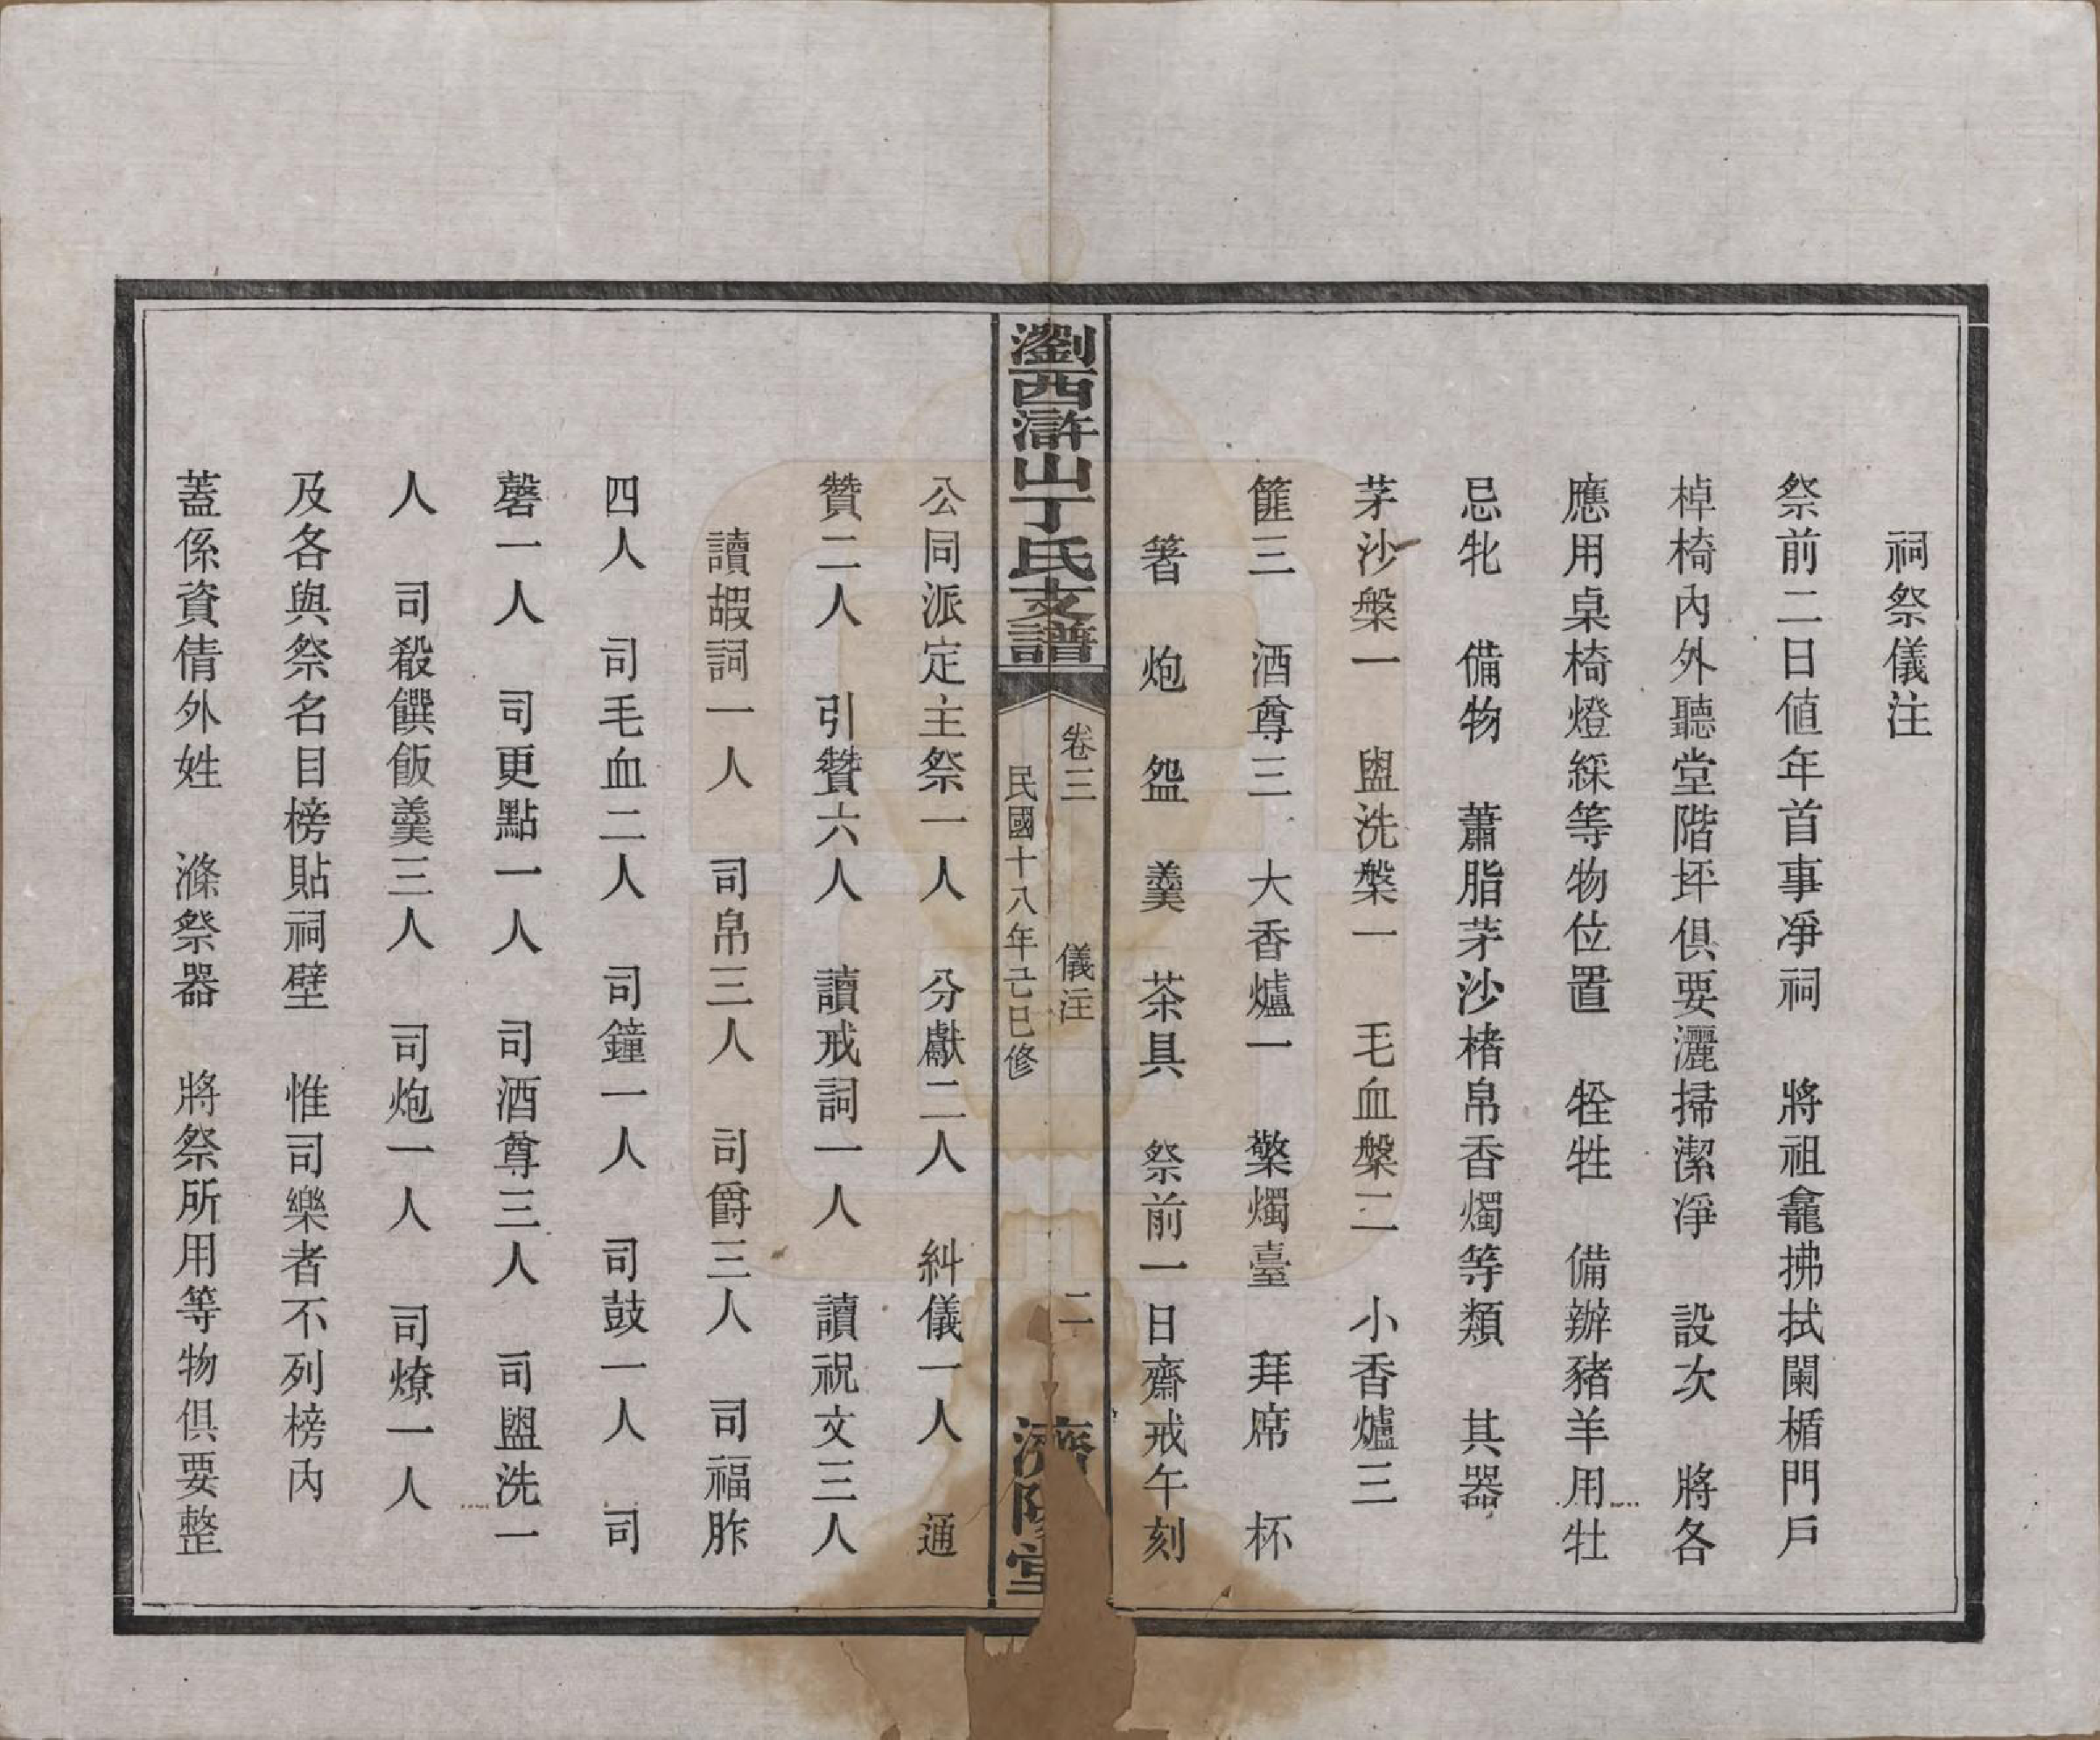 祠祭儀注
祭前二日值年首事凈祠　將祖龕拂拭闌楯門戶
棹椅內外聽堂階坪俱要灑掃潔凈　設次　將各
應用桌椅燈綵等物位置　牷牲　備辦豬羊用牡
忌牝　備物　蕭脂茅沙楮帛香燭等類　其器
茅沙槃一　盥洗槃一　毛血槃二　小香爐三
篚三　酒尊三　大香爐一　檠燭臺　拜席　杯
箸　炮　盌　羹　茶具　祭前一日齋戒午刻
瀏西滸山丁氏支譜
卷三　儀注　二
民國十八年己巳修
濟陽堂
公同派定主祭一人　分獻二人　糾儀一人　通
贊二人　引贊六人　讀戒詞一人　讀祝文三人
讀嘏詞一人　司帛三人　司爵三人　司福胙
四人　司毛血二人　司鐘一人　司鼓一人　司
磬一人　司更點一人　司酒尊三人　司盥洗一
人　司殽饌飯羹三人　司炮一人　司燎一人
及各與祭名目榜貼祠壁　惟司樂者不列榜內
蓋係資倩外姓　滌祭器　將祭所用等物俱要整